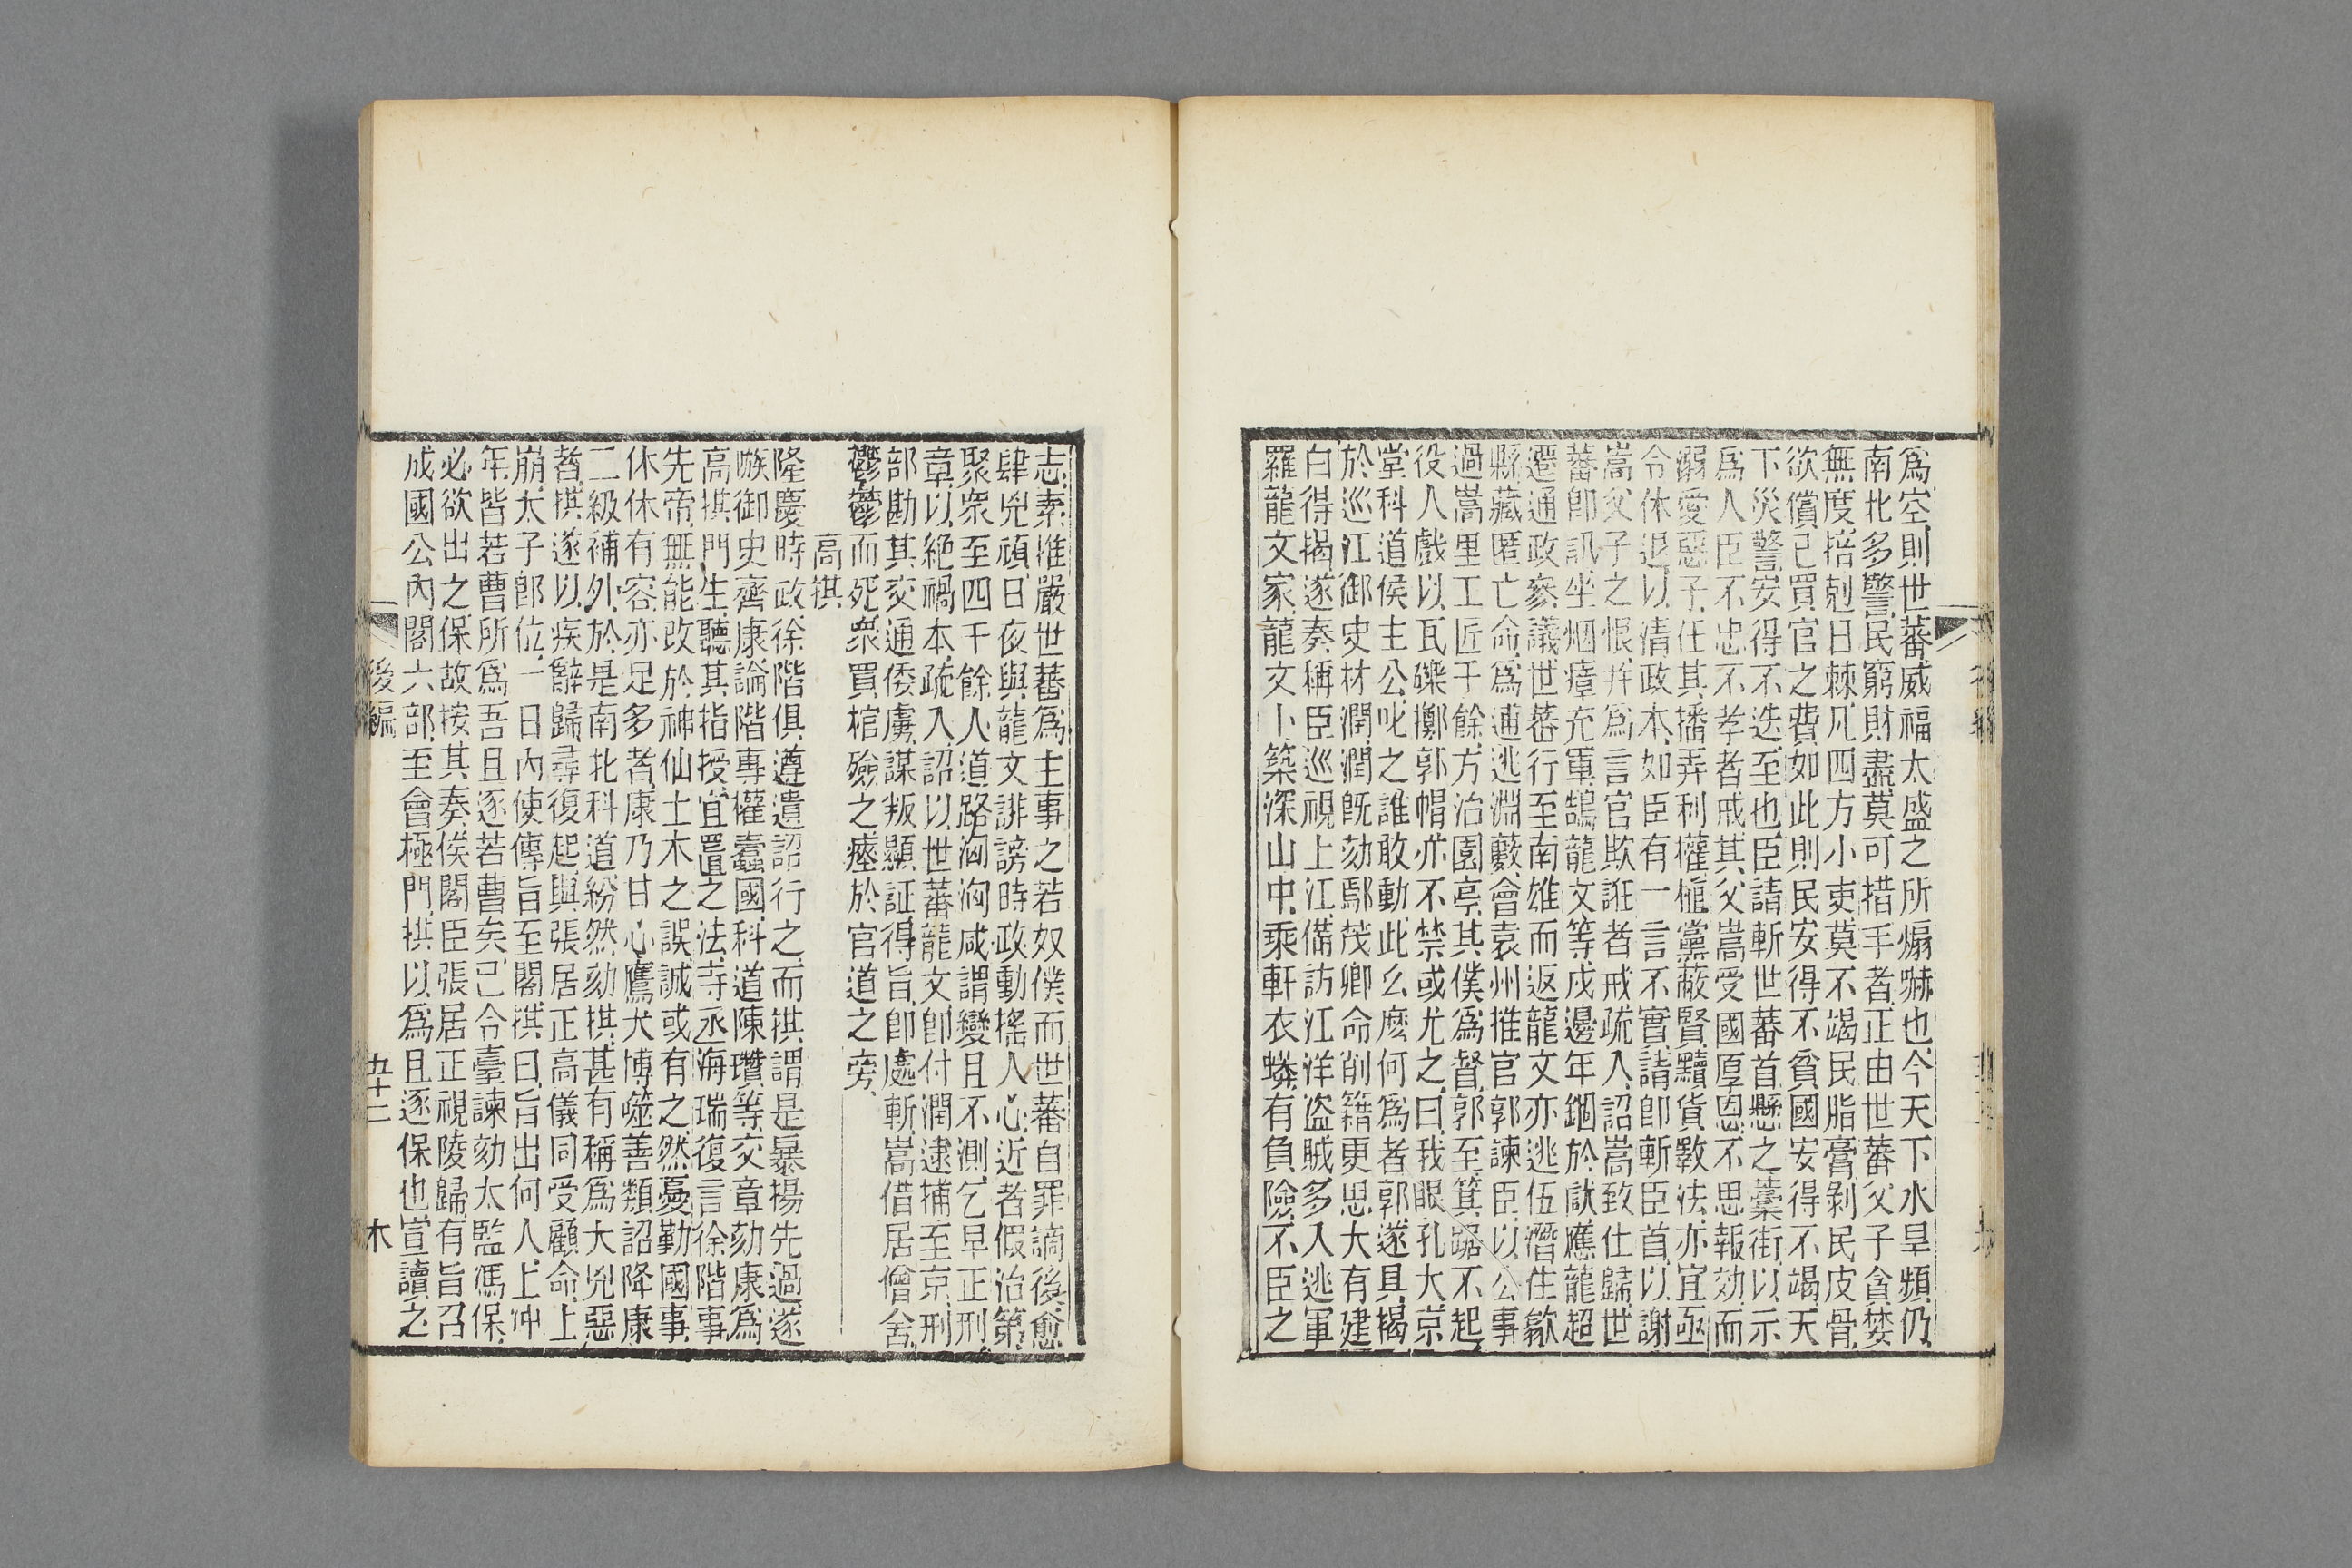 爲空則世蕃威福太盛之所煽嚇也今天下水旱頻仍
南北多警民窮財盡莫可措手者正由世蕃父子貪婪
無度掊剋日棘凡四方小吏莫不竭民脂膏剝民皮骨
欲償已買官之費如此則民安得不貧國安得不竭天
下災警安得不迭至也臣請斬世蕃首懸之藁街以示
爲人臣不忠不孝者戒其父嵩受國厚恩不思報効而
溺愛惡子任其播弄利權植黨蔽賢黷貨斁法亦宜亟
令休退以清政本如臣有一言不實請卽斬臣首以謝
嵩父子之恨幷爲言官欺誑者戒疏入詔嵩致仕歸世
蕃卽訊坐烟瘴充軍鵠龍文等戍邊年錮於獄應龍超
遷通政叅議世蕃行至南雄而返龍文亦逃伍潛住歙
縣藏匿亡命爲逋逃淵藪會袁州推官郭諫臣以公事
過嵩里工匠千餘方治園亭其僕爲督郭至箕踞不起
役人戲以瓦礫擲郭帽亦不禁或尤之曰我眼孔大京
堂科道侯主公叱之誰敢動此么麽何爲者郭遂具揭
於巡江御史材潤潤旣劾鄢茂卿命削籍更思大有建
白得揭遂奏稱臣巡視上江備訪江洋盜賊多入逃軍
羅龍文家龍文卜築深山中乘軒衣蟒有負險不臣之
志素推嚴世蕃爲主事之若奴僕而世蕃自罪謫後愈
肆兇頑日夜與龍文誹謗時政動搖人心近者假治第
聚衆至四千餘人道路洶洶咸謂變且不測乞早正刑
章以絶禍本疏入詔以世蕃龍文卽付潤逮捕至京刑
部勘其交通倭虜謀叛顯証得旨卽處斬嵩借居僧舍
鬱鬱而死衆買棺殮之瘞於官道之旁
高拱
隆慶時政徐階俱遵遺詔行之而拱謂是暴揚先過遂
嗾御史齊康論階專權蠹國科道陳瓚等交章劾康爲
高拱門生聽其指授宜置之法寺丞海瑞復言徐階事
先帝無能改於神仙土木之誤誠或有之然憂勤國事
休休有容亦足多者康乃甘心鷹犬博噬善類詔降康
二級補外於是南北科道紛然劾拱甚有稱爲大兇惡
者拱遂以疾辭歸尋復起與張居正高儀同受顧命上
崩太子卽位一日內使傳旨至閣拱曰旨出何人上冲
年皆若曹所爲吾且逐若曹矣已令臺諫劾太監馮保
必欲出之保故按其奏俟閣臣張居正視陵歸有旨召
成國公內閣六部至會極門拱以爲且逐保也宣讀之
後編
五十二
木